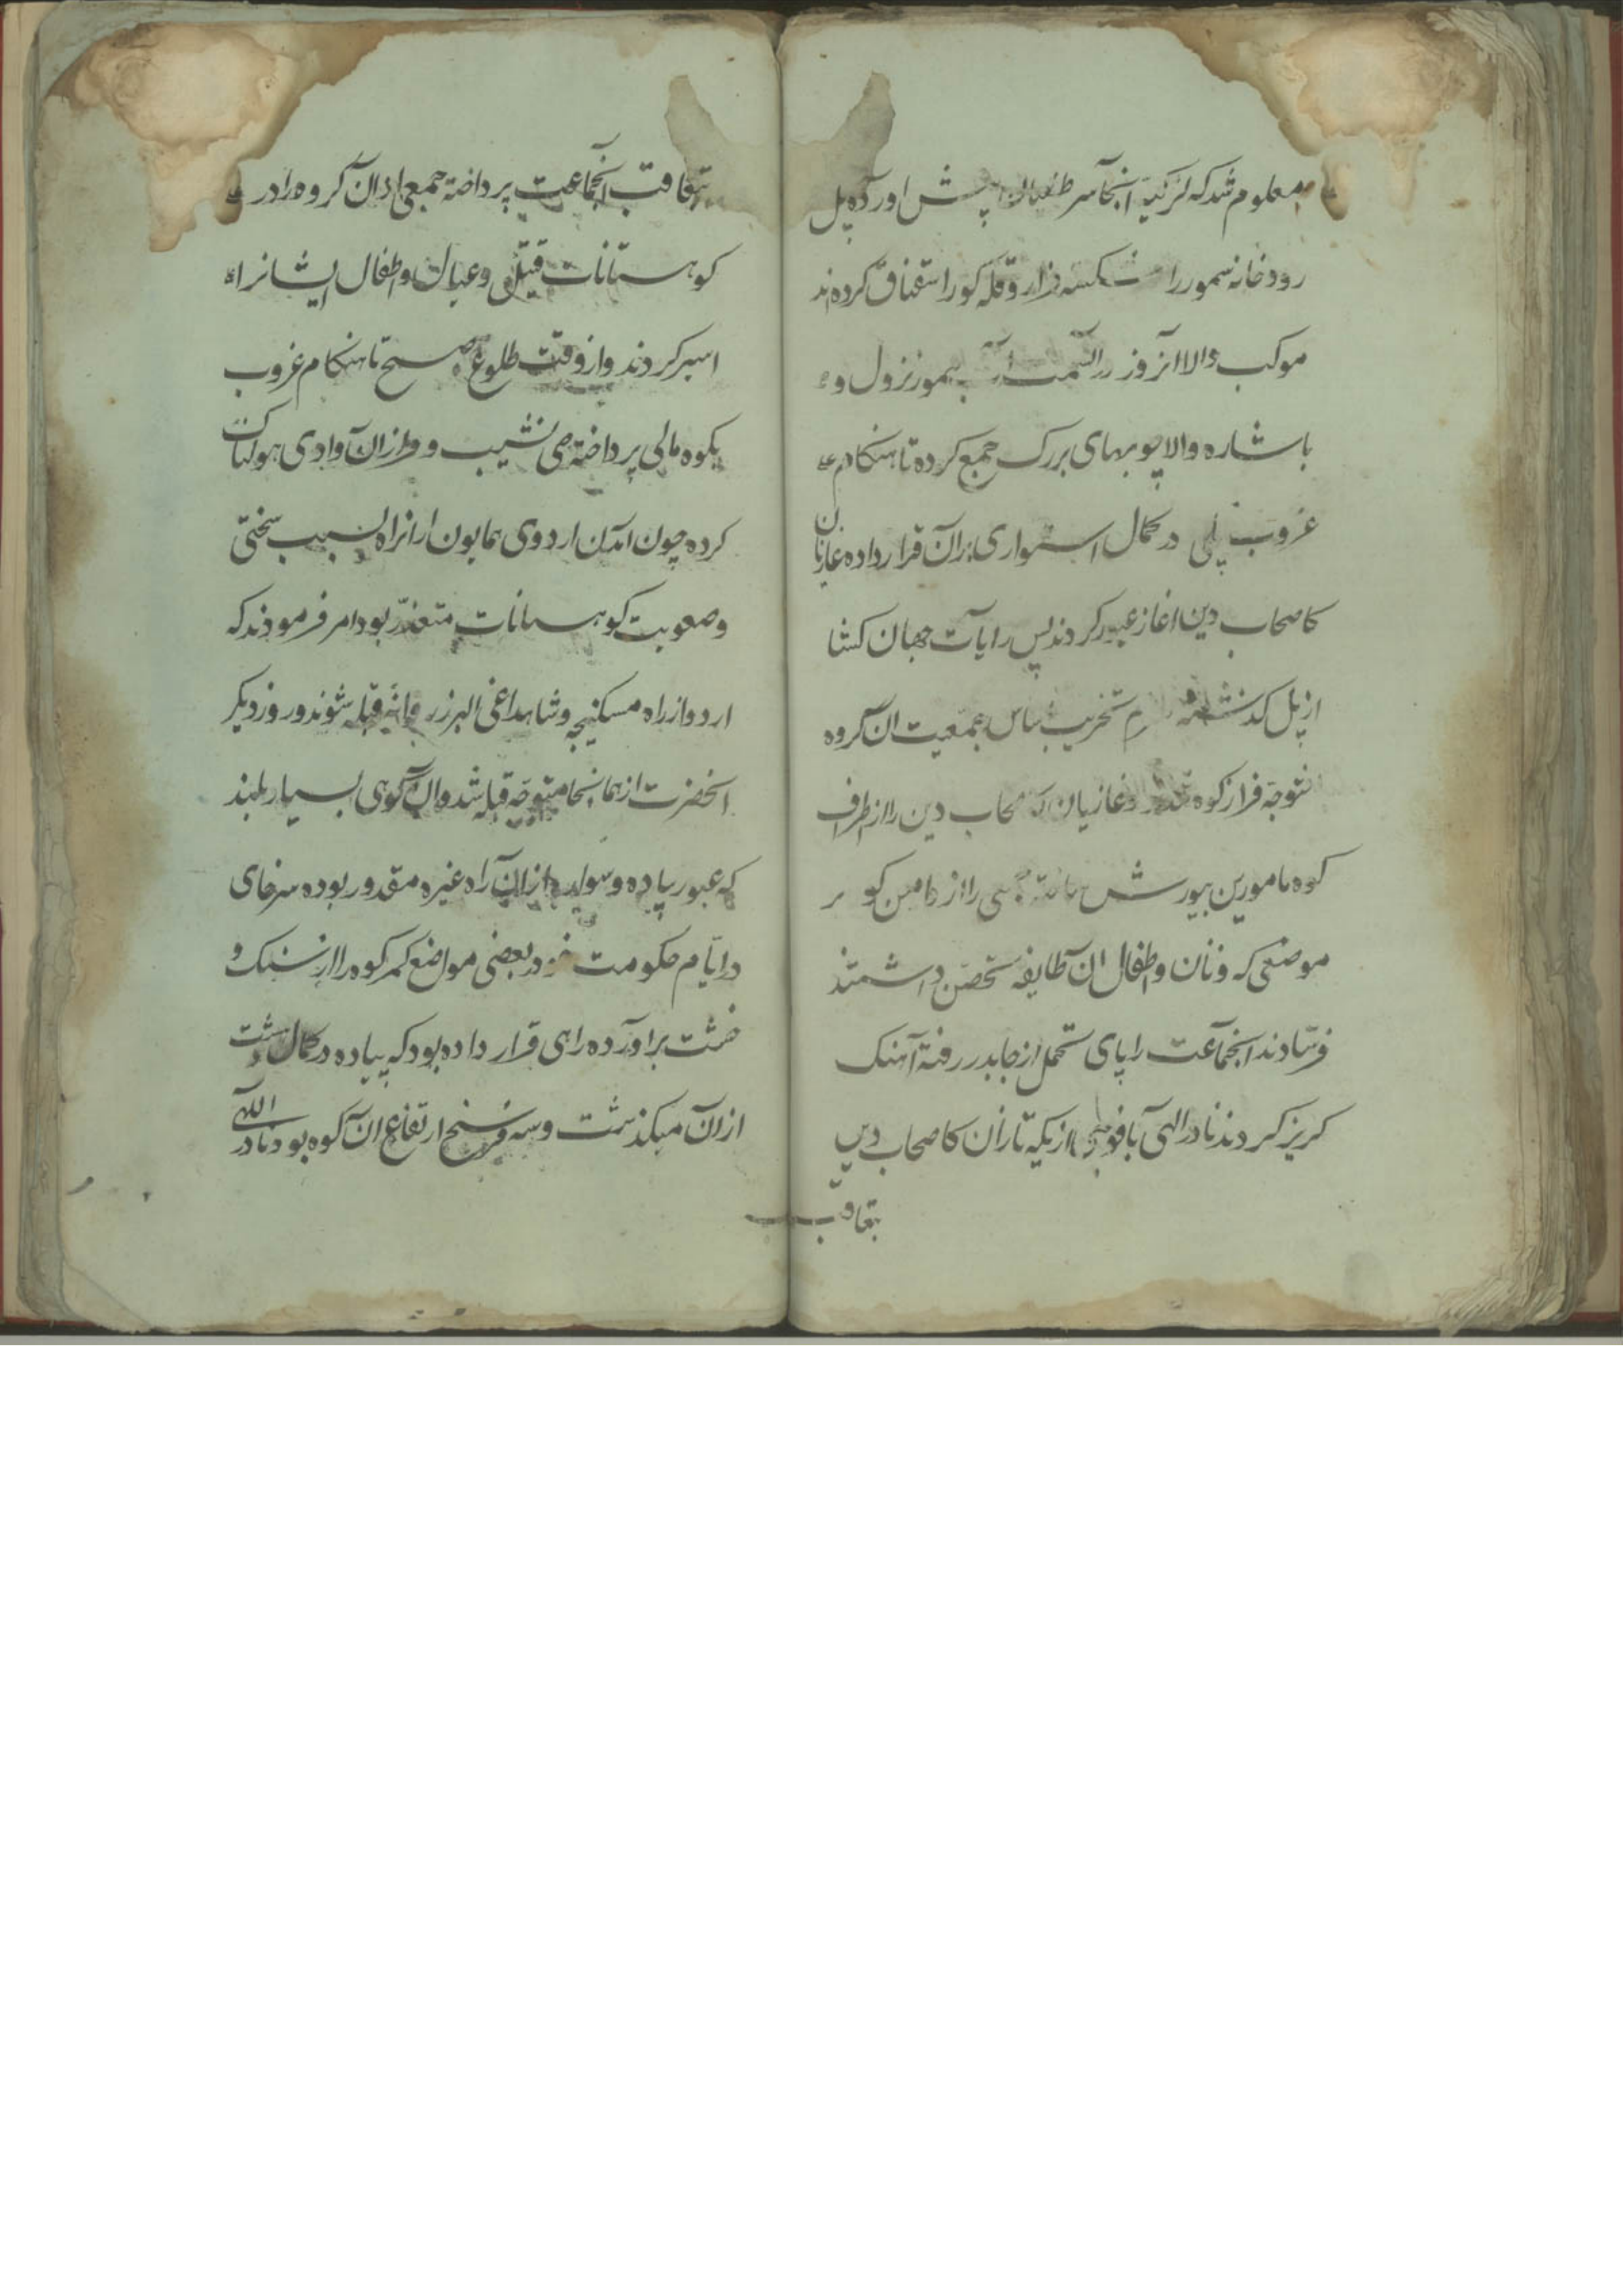 معلوم شد که لزکیه انجا سر طغیان پیش اورده پل
رودخانه سمور را شکسته فراز و قله کوه را سقناق کرده‌اند
موکب والا انروز در انسمت آب سمور نزول و
باشاره والا چوبهای بزرک جمع کرده تا هنکام
غروب پلی در کمال استواری بران قرار داده غازیان
کاصحاب دین اغاز عبور کردند پس رایات جهان کشا
از پل کذشته تخریب اساس جمعیت ان کروه
متوجه فراز کوه شده و غازیان کاصحاب دین را از اطراف
کوه مامورین بیورش ساخته جمعی را از دامن کوه بر
موضعی که زنان و اطفال ان طایفه تحصن داشتند
فرستادند انجماعت را پای تحمل از جا بدر رفته آهنک
کریز کردند نادر الهی با فوجی از یکه تازان کاصحاب دین
بتعاقب
بتعاقب انجماعت پرداخته جمعی از ان کروه را در
کوهستانات قتیل و عیال و اطفال ایشانرا
اسیر کردند و از وقت طلوع صبح تا هنکام غروب
بکوه مالی پرداخته طی نشیب و فراز ان وادی هولناک
کرده چون امدن اردوی همایون ازانراه بسبب سختی
و صعوبت کوهستانات متعذر بود امر فرمودند که
اردو از راه مسکنیجه و شاهداغی البرز روانه قبله شوند و روز دیکر
انحضرت از همانجا متوجه قبله شد و ان کوهی بسیار بلند
که عبور پیاده و سواره ازان راه غیره مقدور بوده سرخای
در ایام حکومت خود در بعضی مواضع کمر کوه را از سنک و
خشت براورده راهی قرار داده بود که پیاده در کمال
ازان میکذشت و سه فرسنخ ارتفاع ان کوه بود نادر الهی